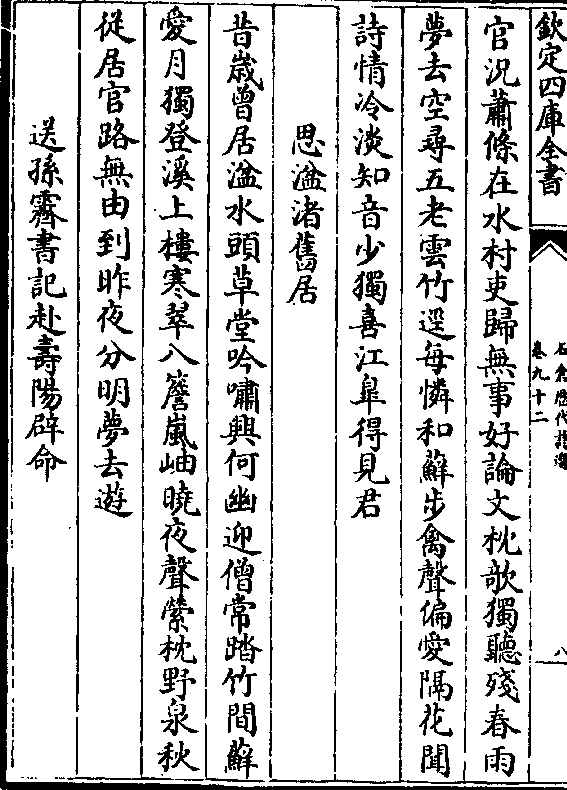 欽定四庫全書
石倉歷代詩選
卷九十二
八
官況蕭條在水村吏歸無事好論文枕欹獨聽殘春雨
夢去空尋五老雲竹逕每憐和蘚步禽聲偏愛隔花聞
詩情冷淡知音少獨喜江臯得見君
思湓渚舊居
昔嵗曾居湓水頭草堂吟嘯興何幽迎僧常踏竹間蘚
愛月獨登溪上樓寒翠入簷嵐岫曉夜聲縈枕野泉秋
從居官路無由到昨夜分明夢去遊
送孫霽書記赴壽陽辟命